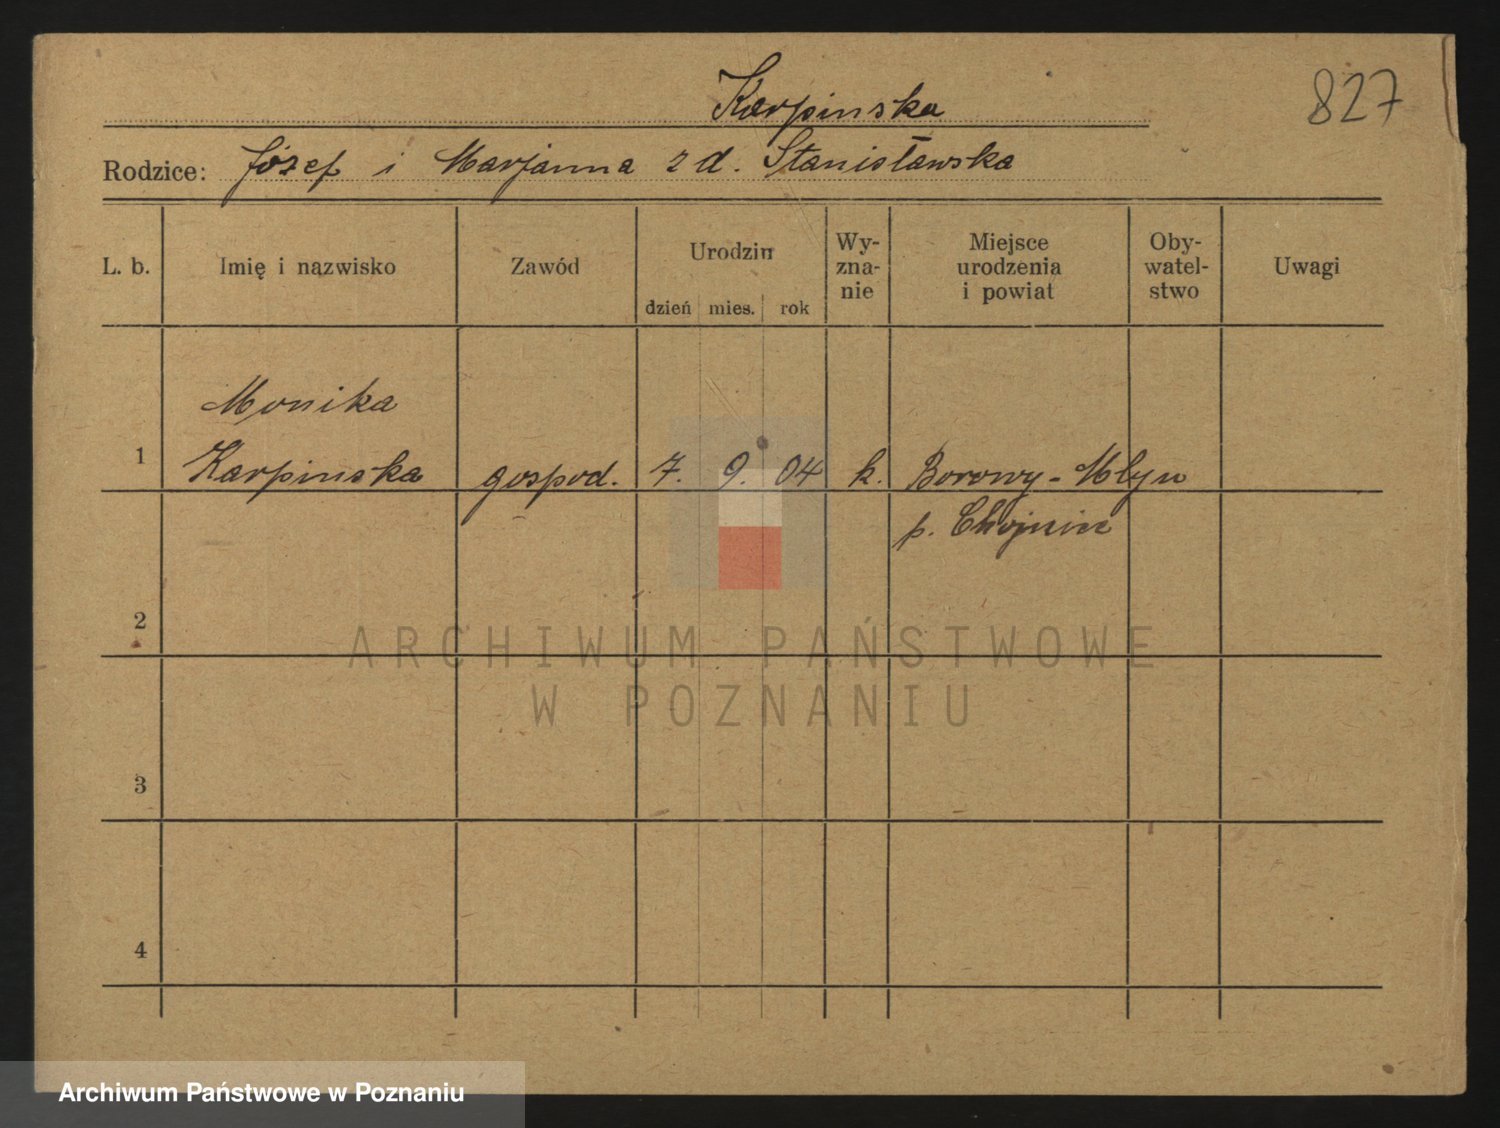 827
Karpinska
Rodzice: Józef i Marjanna z d. Stanisławska
L. b. Imię i nazwisko Zawód Urodzin dzień mies. rok Wy-zna-nie Miejsce urodzenia i powiat Oby-watel-stwo Uwagi
Monika
1 Karpinska gospod. 7. 9. 04 k. Borowy-Młyn
p. Chojnice
2
ARCHIWUM PAŃSTWOWE
W POZNANIU
3
4
Archiwum Państwowe w Poznaniu